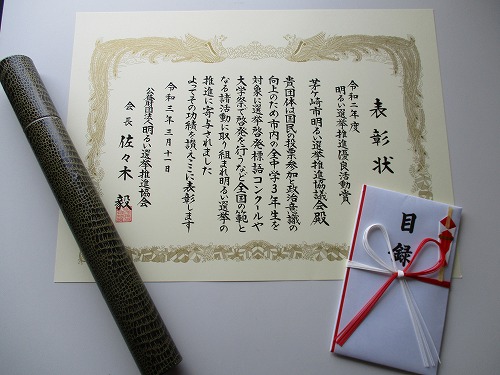 表彰状
令和二年度
明るい選挙推進優良活動賞
茅ヶ崎市明るい選挙推進協議会殿
貴団体は国民の投票参加と政治意識の
向上のため市内の全中学3年生を
対象に選挙啓発標語コンクールや
大学祭で啓発を行うなど全国の範と
なる諸活動に取り組まれ明るい選挙の
推進に寄与されました
よってその功績を讃えここに表彰します
令和三年三月十一日
公益財団法人明るい選挙推進協会
会長 佐々木 毅
目録